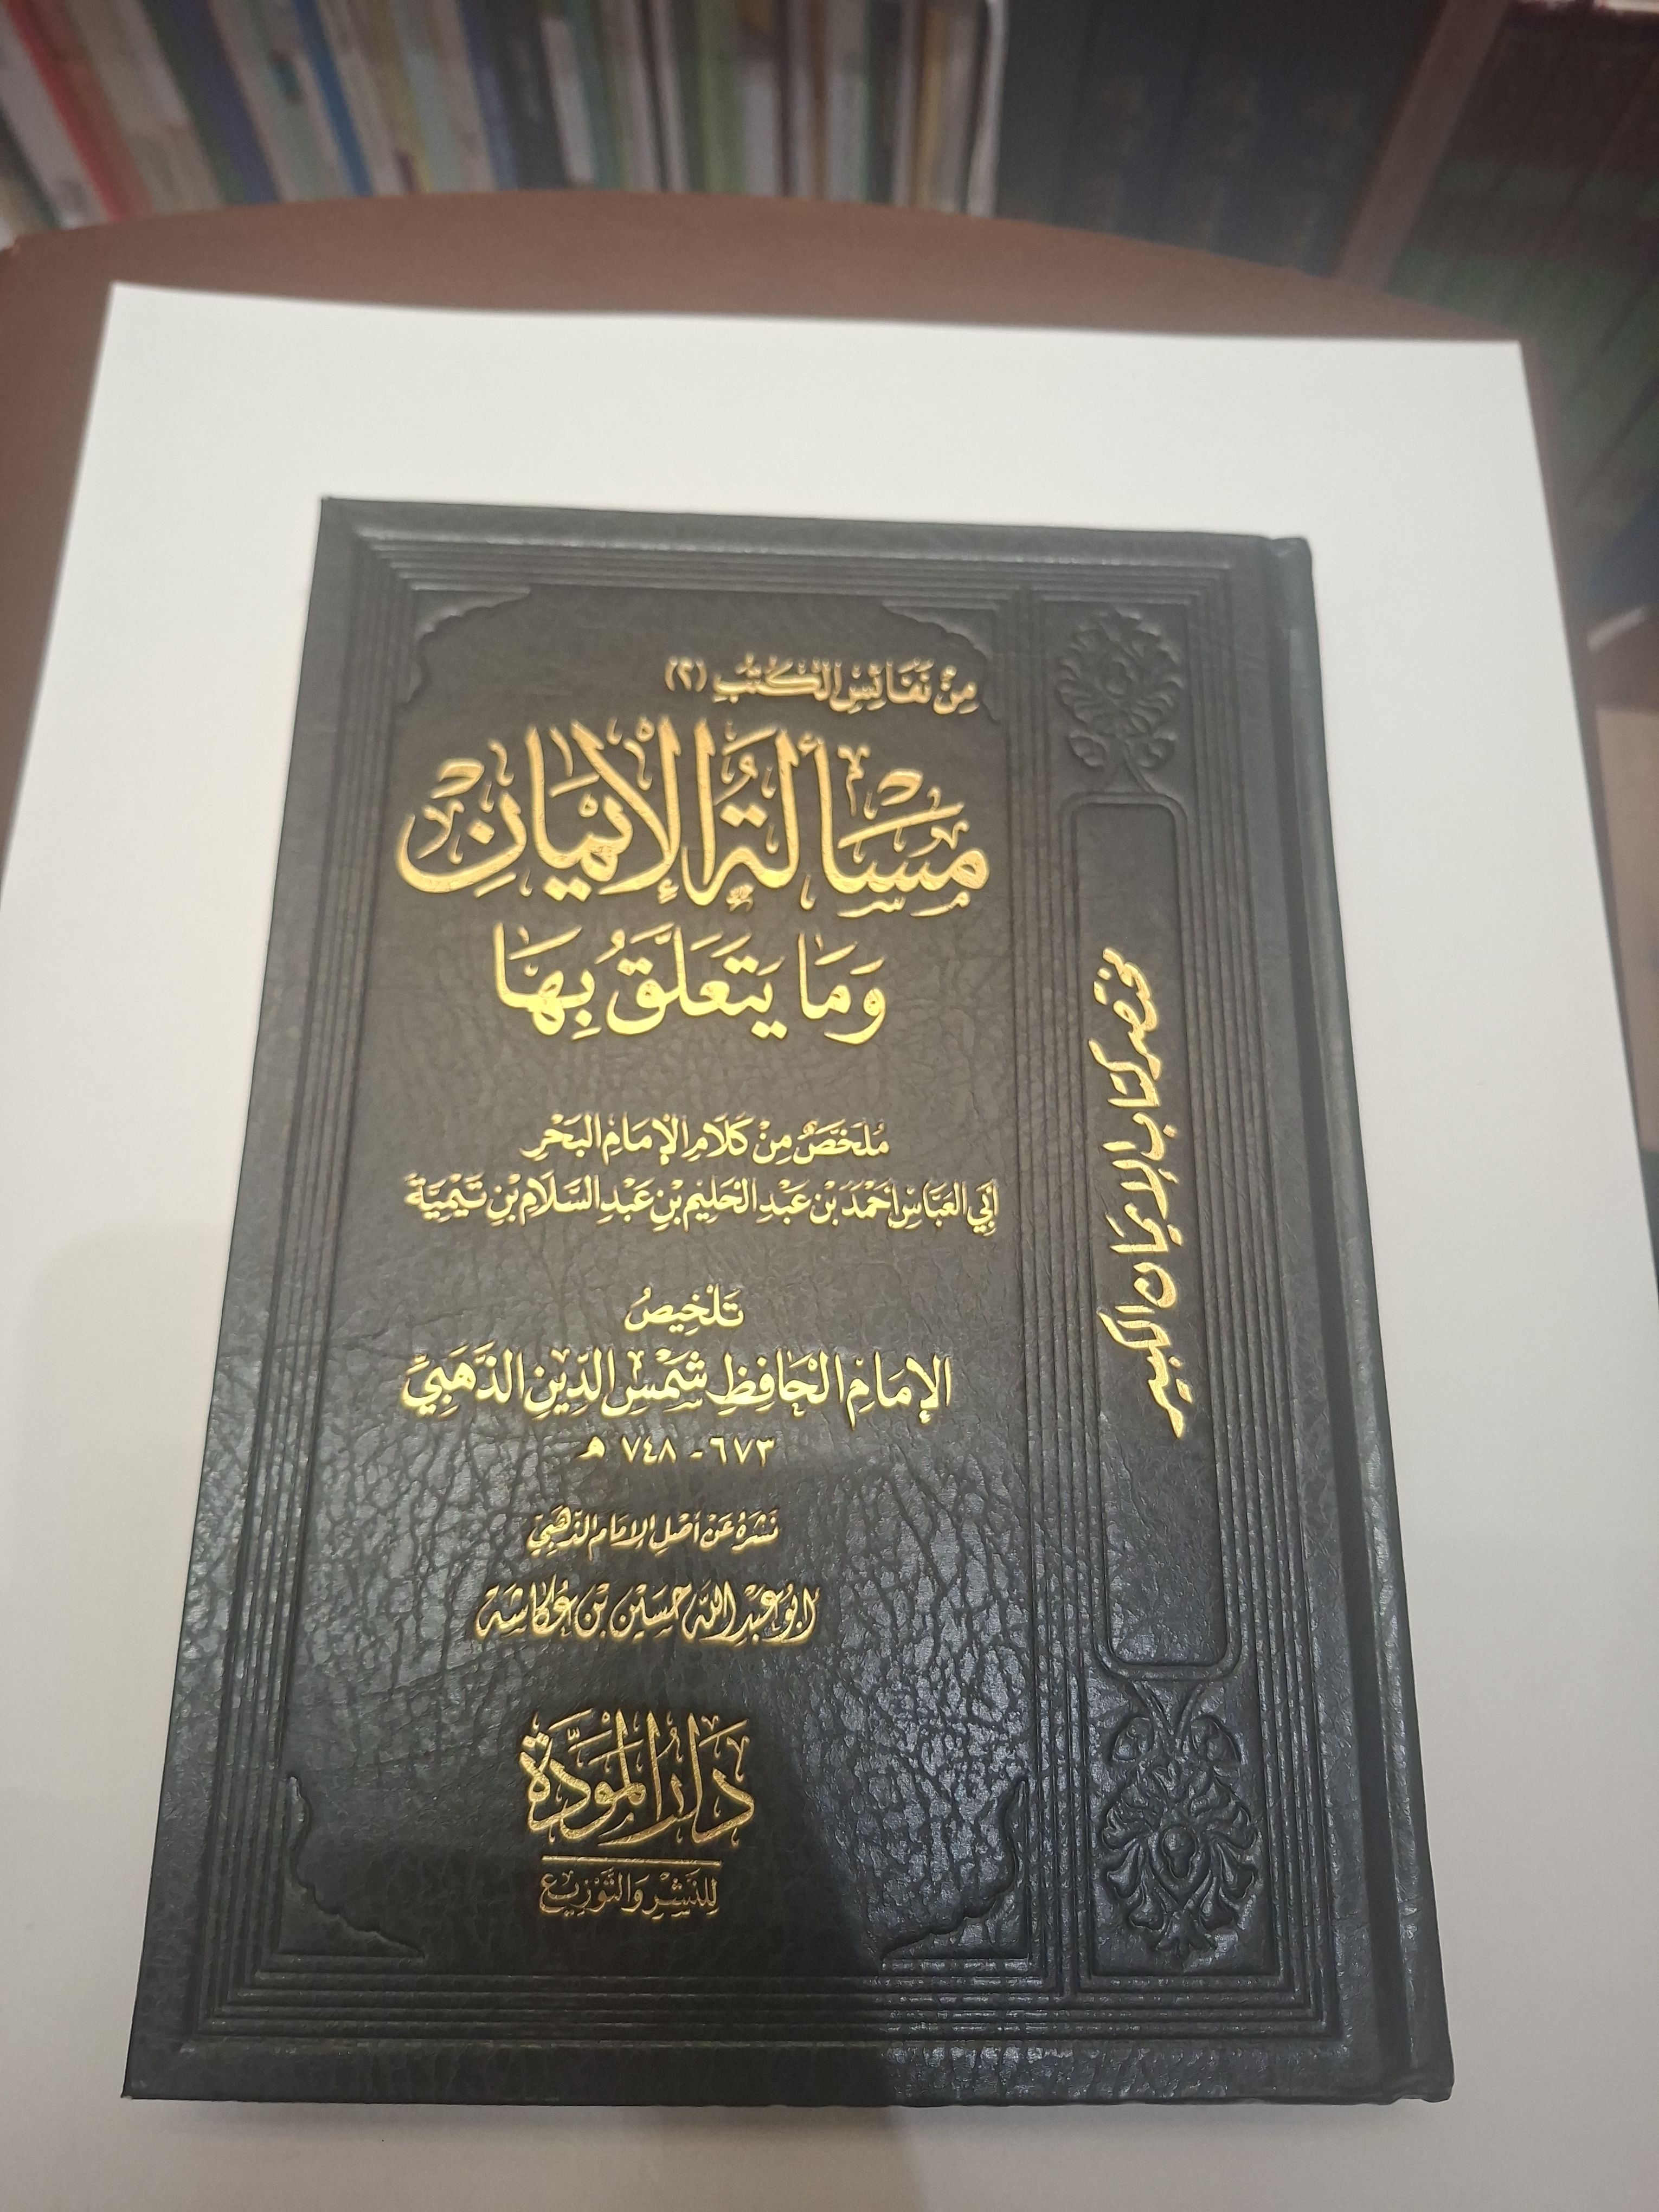 مِنْ نَفَائِسِ الْكُتُبِ (٢)
مَسْأَلَةُ الْإِيْمَانِ
وَمَا يَتَعَلَّقُ بِهَا
مُلَخَّصٌ مِنْ كَلَامِ الإِمَامِ البَحْرِ
أَبِي العَبَّاسِ أَحْمَدَ بْنِ عَبْدِ الْحَلِيمِ بْنِ عَبْدِ السَّلَامِ بْنِ تَيْمِيَّةَ
تَلْخِيصُ
الإِمَامِ الْحَافِظِ شَمْسِ الدِّينِ الذَّهَبِيِّ
٦٧٣ - ٧٤٨ هـ
نَشَرَهُ عَنْ أَصْلِ الإِمَامِ الذَّهَبِيِّ
أَبُو عَبْدِ اللَّهِ حُسَيْن بْن عُكَاشَة
دَارُ الْمَوَدَّة
لِلنَّشْرِ وَالتَّوْزِيعِ
مختصر كتاب الإيمان الكبير